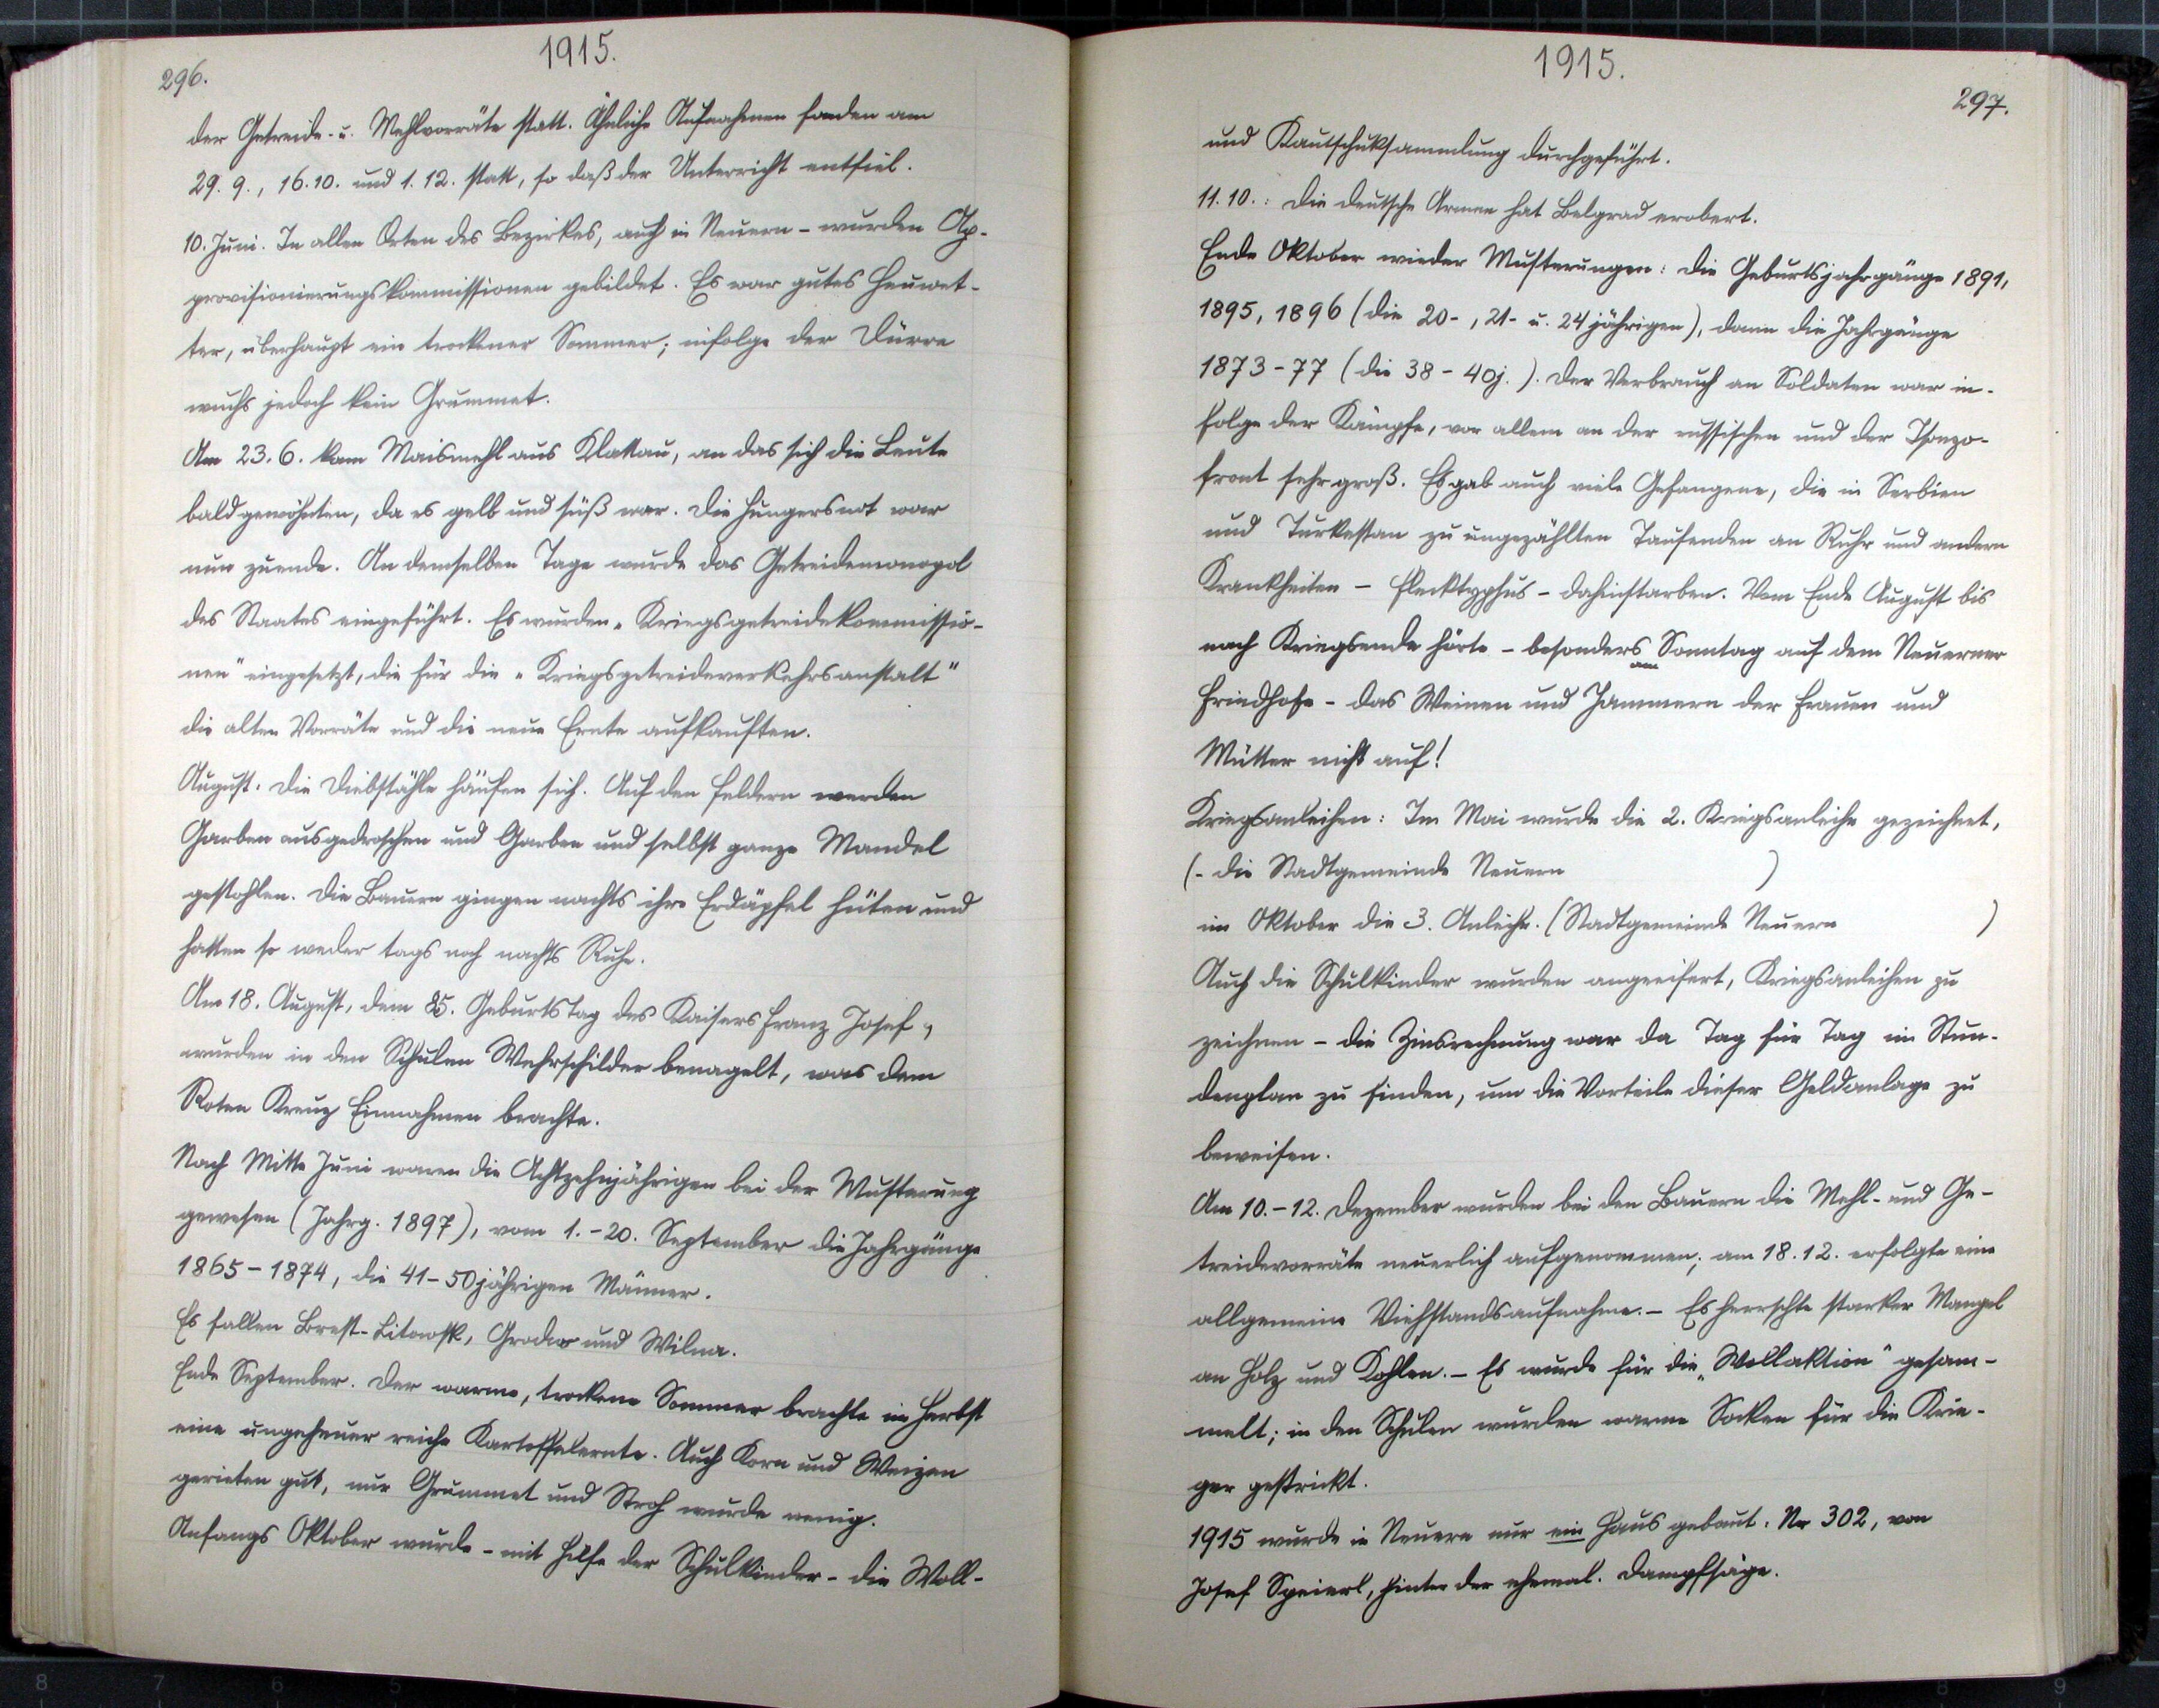 1915.
296.
der Getreide- u. Mehlvorräte statt. Ähnliche Aufnahmen fanden am
29. 9., 16. 10. und 1. 12. statt, so daß der Unterricht entfiel.
10. Juni. In allen Orten des Bezirkes, auch in Neuern - wurden Ap-
provisionierungskommissionen gebildet. Es war gutes Heuwet-
ter, überhaupt ein trockener Sommer; infolge der Dürre
wuchs jedoch kein Grummet.
Am 23. 6. kam Maismehl aus Klattau, an das sich die Leute
bald gewöhnten, da es gelb und süß war. Die Hungersnot war
nun zuende. An demselben Tage wurde das Getreidemonopol
des Staates eingeführt. Es wurden „Kriegsgetreidekommissio-
nen" eingesetzt, die für die „Kriegsgetreideverkehrsanstalt"
die alten Vorräte und die neue Ernte aufkauften.
August. Die Diebstähle häufen sich. Auf den Feldern werden
Garben ausgedroschen und Garben und selbst ganze Mandel
gestohlen. Die Bauern gingen nachts ihre Erdäpfel hüten und
hatten so weder tags noch nachts Ruhe.
Am 18. August, dem 85. Geburtstag des Kaisers Franz Josef,
wurden in den Schulen Wehrschilder benagelt, was dem
Roten Kreuz Einnahmen brachte.
Nach Mitte Juni waren die Achtzehnjährigen bei der Musterung
gewesen (Jahrg. 1897), vom 1.-20. September die Jahrgänge
1865-1874, die 41-50jährigen Männer.
Es fallen Brest-Litowsk, Grodno und Wilna.
Ende September. Der warme, trockene Sommer brachte im Herbst
eine ungeheuer reiche Kartoffelernte. Auch Korn und Weizen
gerieten gut, nur Grummet und Stroh wurde wenig.
Anfangs Oktober wurde - mit Hilfe der Schulkinder - die Woll-
1915.
297.
und Kautschuksammlung durchgeführt.
11. 10.: Die deutsche Armee hat Belgrad erobert.
Ende Oktober wieder Musterungen: Die Geburtsjahrgänge 1891,
1895, 1896 (die 20-, 21- u. 24jährigen), dann die Jahrgänge
1873-77 (die 38-40j.). Der Verbrauch an Soldaten war in-
folge der Kämpfe, vor allem an der russischen und der Isonzo-
front sehr groß. Es gab auch viele Gefangene, die in Serbien
und Turkestan zu ungezählten Tausenden an Ruhr und andern
Krankheiten - Flecktyphus - dahinstarben. Vom Ende August bis
nach Kriegsende hörte - besonders am Sonntag auf dem Neuerner
Friedhofe - das Weinen und Jammern der Frauen und
Mütter nicht auf!
Kriegsanleihen: Im Mai wurde die 2. Kriegsanleihe gezeichnet,
(- die Stadtgemeinde Neuern )
im Oktober die 3. Anleihe. (Stadtgemeinde Neuern )
Auch die Schulkinder wurden angeeifert, Kriegsanleihen zu
zeichnen - die Zinsrechnung war da Tag für Tag im Stun-
denplan zu finden, um die Vorteile dieser Geldanlage zu
beweisen.
Am 10.-12. Dezember wurden bei den Bauern die Mehl- und Ge-
treidevorräte neuerlich aufgenommen; am 18. 12. erfolgte eine
allgemeine Viehstandsaufnahme. - Es herrschte starker Mangel
an Holz und Kohlen. - Es wurde für die „Wollaktion" gesam-
melt; in den Schulen wurden warme Socken für die Krie-
ger gestrickt.
1915 wurde in Neuern nur ein Haus gebaut. Nr 302, von
Josef Speierl, hinter der ehemal. Dampfsäge.
8 7 6 5 8 9